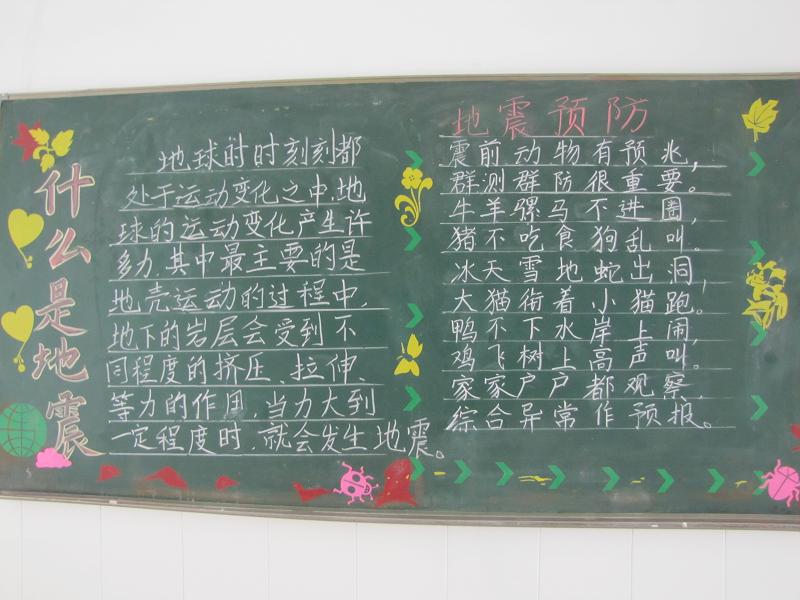 什么是地震
地球时时刻刻都
处于运动变化之中,地
球的运动变化产生许
多力,其中最主要的是
地壳运动的过程中,
地下的岩层会受到不
同程度的挤压、拉伸、
等力的作用,当力大到
一定程度时,就会发生地震。
地震预防
震前动物有预兆,
群测群防很重要。
牛羊骡马不进圈,
猪不吃食狗乱叫。
冰天雪地蛇出洞,
大猫衔着小猫跑。
鸭不下水岸上闹,
鸡飞树上高声叫。
家家户户都观察,
综合异常作预报。